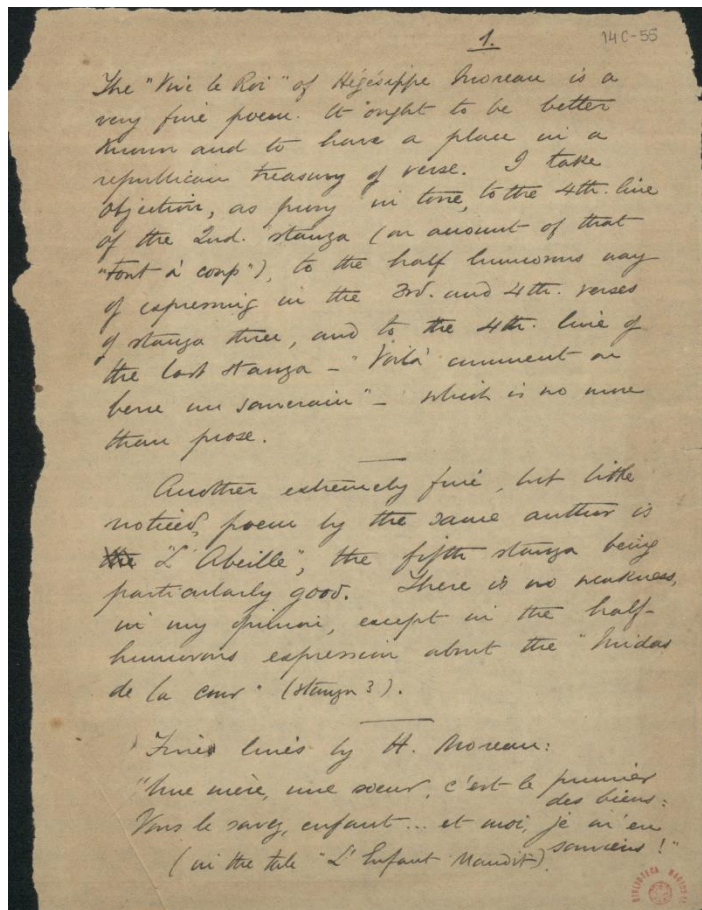 1.
14C-55
The "Vive le Roi" of Hégésippe Moreau is a
very fine poem. It ought to be better
known and to have a place in a
republican treasury of verse. I take
objection, as puny in tone, to the 4th. line
of the 2nd. stanza (on account of that
"tout à coup"), to the half humorous way
of expressing in the 3rd. and 4th. verses
of stanza three, and to the 4th. line of
the last stanza - "Voilà comment on
berne un souverain" - which is no more
than prose.
Another extremely fine, but little
noticed, poem by the same author is
"L'Abeille", the fifth stanza being
particularly good. There is no weakness,
in my opinion, except in the half-
humorous expression about the "Midas
de la cour" (stanza 3).
Fine lines by H. Moreau:
"Une mère, une soeur, c'est le premier
des biens:
Vous le savez, enfant... et moi, je m'en
souviens!"
(in the tale "L'Enfant Maudit").
BIBLIOTECA